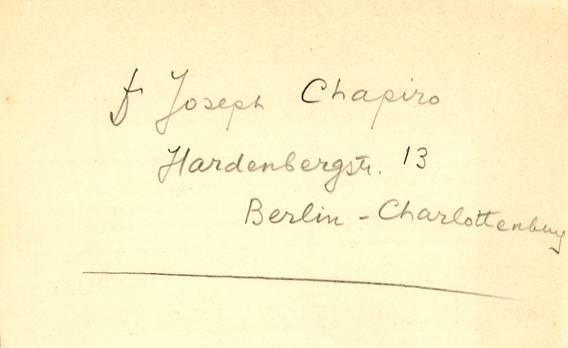 Dr Joseph Chapiro
Hardenbergstr. 13
Berlin - Charlottenburg